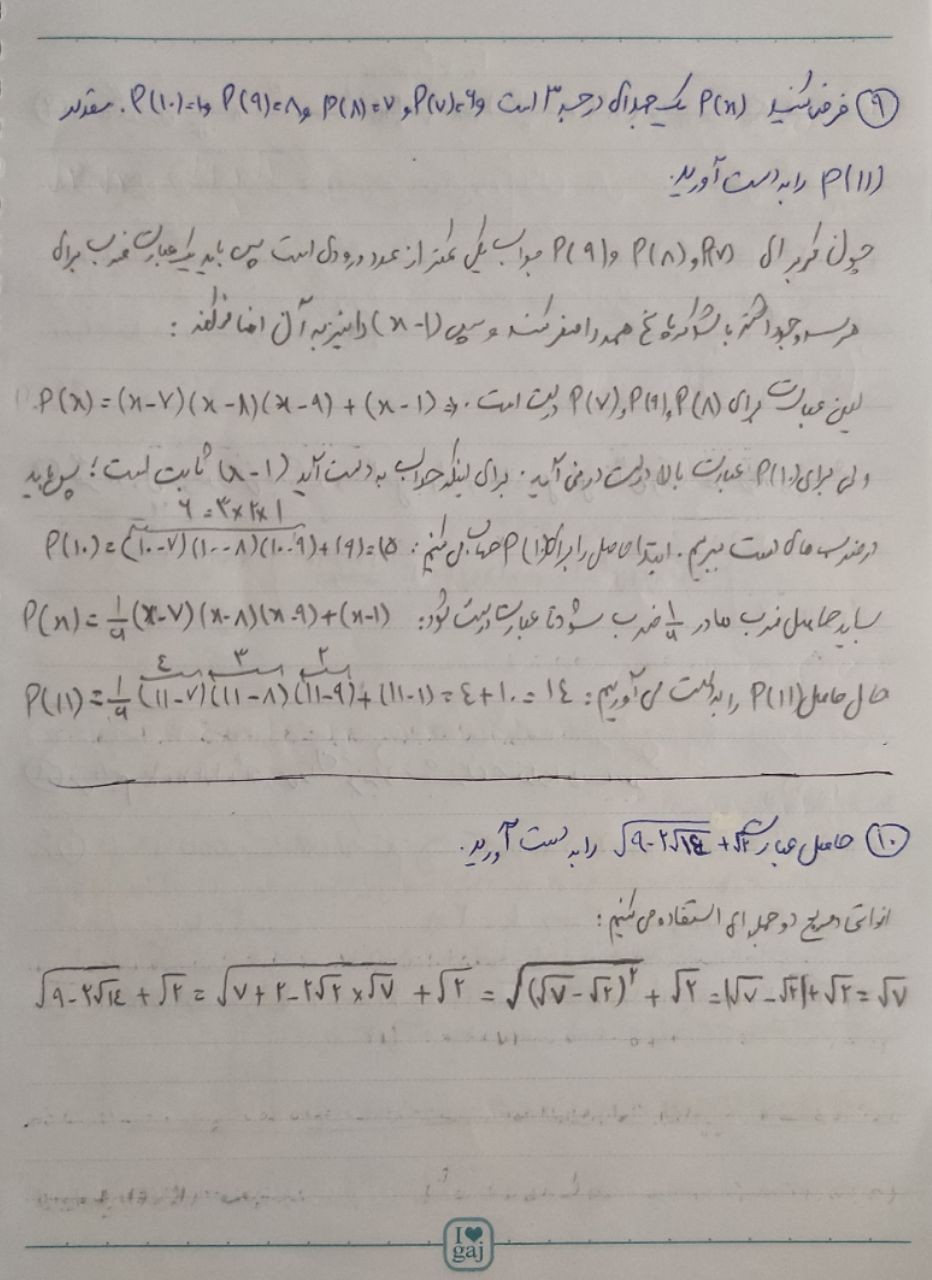 ۹ فرض کنید P(x) یک چندجمله‌ای درجه ۳ است و P(۷)=۶ و P(۸)=۷ و P(۹)=۸ و P(۱۰)=۱۰. مقدار
P(۱۱) را به دست آورید.
چون که برای P(۷) و P(۸) و P(۹) جواب یکی کمتر از عدد ورودی است پس باید یک عبارت ضرب برای
هر سه وجود داشته باشد که پاسخ همه را صفر کند و سپس (x-۱) را نیز به آن اضافه کند :
این عبارت برای P(۸) , P(۹) , P(۷) درست است. ⇒ P(x)=(x-۷)(x-۸)(x-۹)+(x-۱)
ولی برای P(۱۰) عبارت بالا درست در نمی آید. برای اینکه جواب به دست آید (x-۱) ثابت است؛ پس باید
۶=۳×۲×۱
در ضرب ها دست ببریم. ابتدا حاصل را برای P(۱۰) حساب می کنیم: P(۱۰)=(۱۰-۷)(۱۰-۸)(۱۰-۹)+(۹)=۱۵
باید حاصل ضرب ما در ۱/۶ ضرب شود تا عبارت درست شود: P(x)=۱/۶(x-۷)(x-۸)(x-۹)+(x-۱)
٤ ۳ ۲
حال حاصل P(۱۱) را بدست می آوریم: P(۱۱)=۱/۶(۱۱-۷)(۱۱-۸)(۱۱-۹)+(۱۱-۱)=٤+۱۰=۱٤
۱۰ حاصل عبارت √(۹-۲√۱٤)+√۲ را به دست آورید.
از اتحاد مربع دو جمله ای استفاده می کنیم:
√(۹-۲√۱٤)+√۲=√(۷+۲-۲√۲×√۷)+√۲=√((√۷-√۲)^۲)+√۲=|√۷-√۲|+√۲=√۷
I ♥
gaj